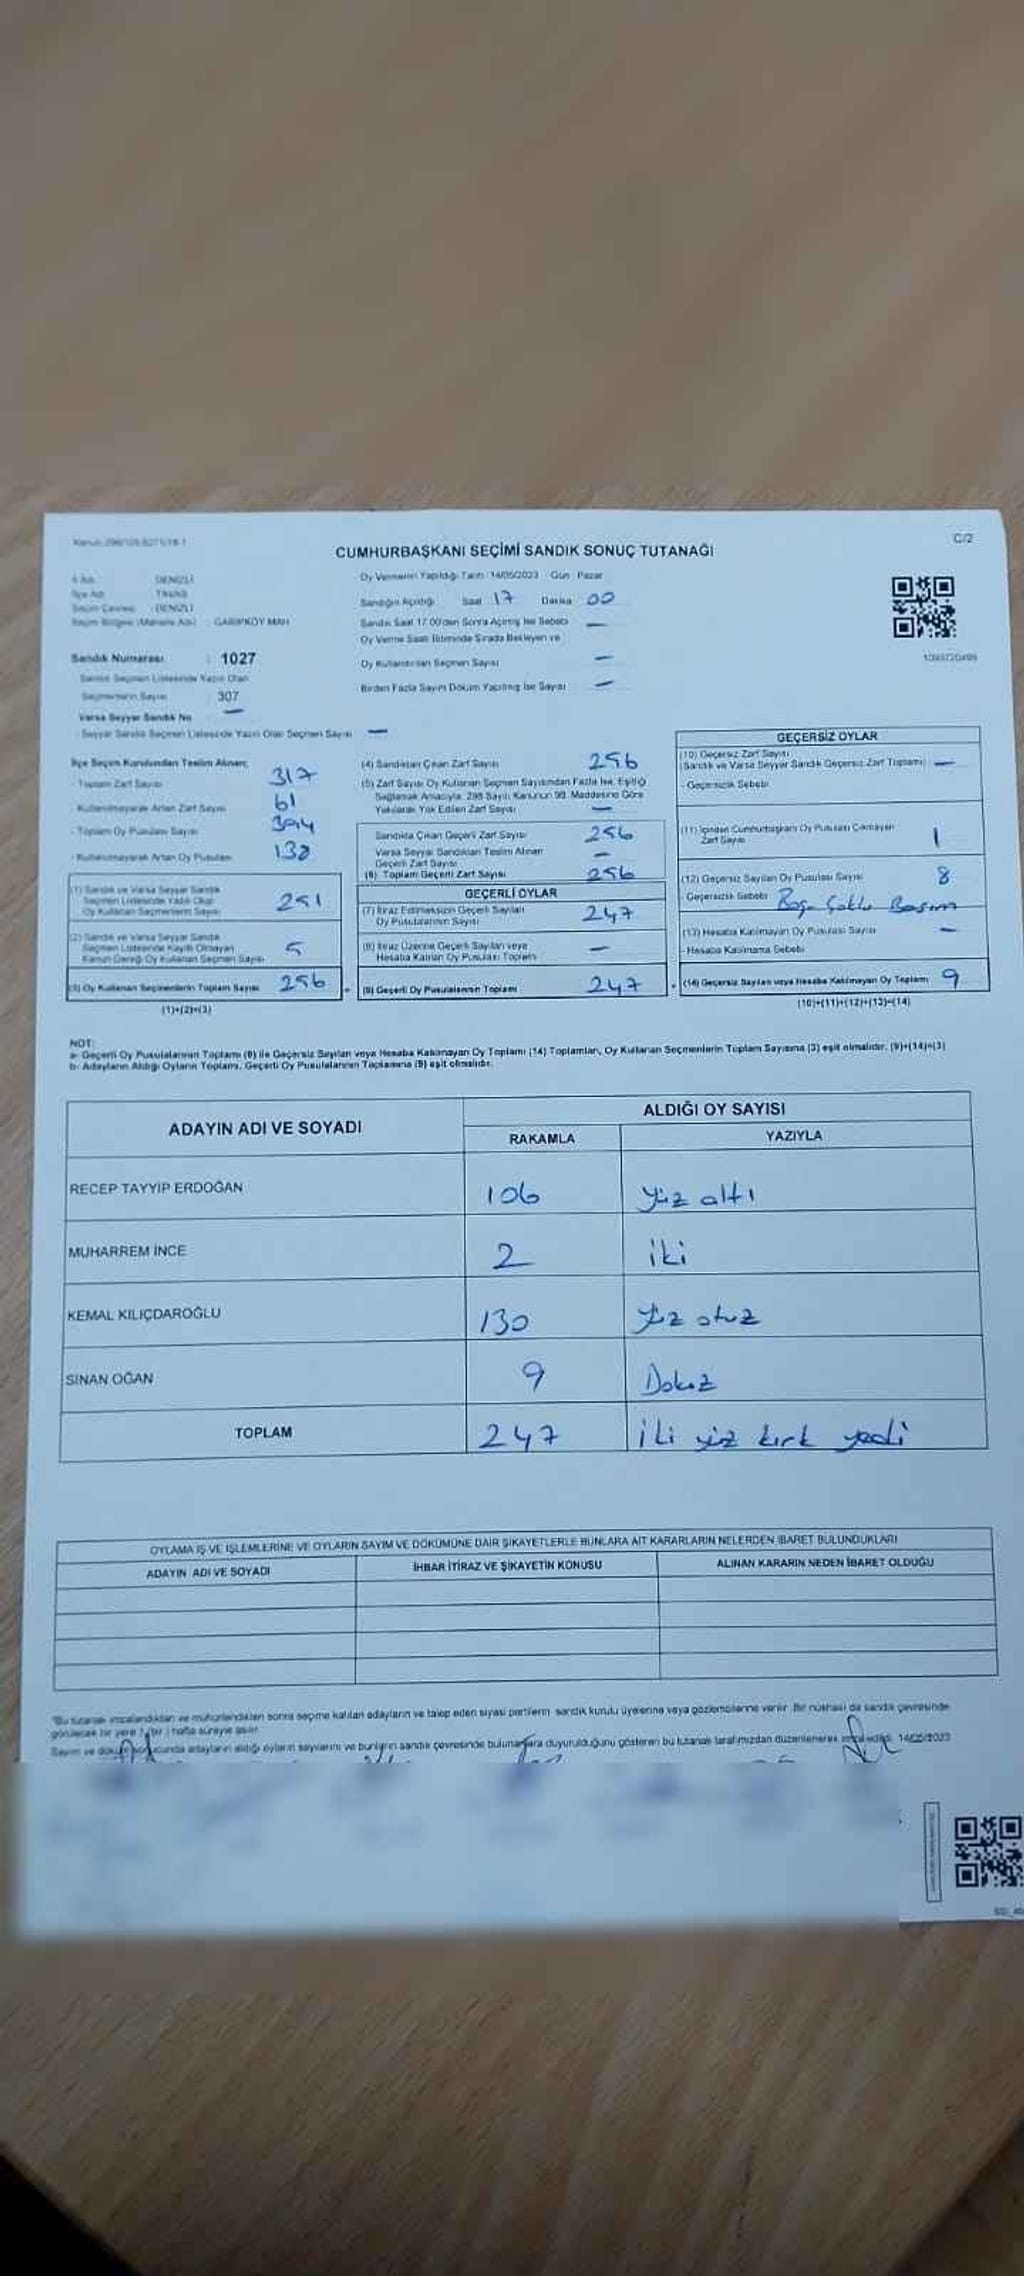 C/2
CUMHURBAŞKANI SEÇİMİ SANDIK SONUÇ TUTANAĞI
İl Adı DENİZLİ
İlçe Adı
Seçim Çevresi DENİZLİ
Seçim Bölgesi (Mahalle Adı) : GARİPKÖY MAH
Sandık Numarası : 1027
Sandık Seçmen Listesinde Yazılı Olan
Seçmenlerin Sayısı 307
Varsa Seyyar Sandık No —
- Seyyar Sandık Seçmen Listesinde Yazılı Olan Seçmen Sayısı —
Oy Vermenin Yapıldığı Tarih 14/05/2023 Gün Pazar
Sandığın Açıldığı Saat 17 Dakika 00
Sandık Saat 17.00'den Sonra Açılmış İse Sebebi —
Oy Verme Saati Bitiminde Sırada Bekleyen ve
Oy Kullandırılan Seçmen Sayısı —
Birden Fazla Sayım Döküm Yapılmış İse Sayısı —
İlçe Seçim Kurulundan Teslim Alınan;
- Toplam Zarf Sayısı 317
- Kullanılmayarak Artan Zarf Sayısı 61
- Toplam Oy Pusulası Sayısı 394
- Kullanılmayarak Artan Oy Pusulası 138
(1) Sandık ve Varsa Seyyar Sandık
Seçmen Listesinde Yazılı Olup
Oy Kullanan Seçmenlerin Sayısı 251
(2) Sandık ve Varsa Seyyar Sandık
Seçmen Listesinde Kayıtlı Olmayan
Kanun Gereği Oy Kullanan Seçmen Sayısı 5
(3) Oy Kullanan Seçmenlerin Toplam Sayısı 256
(1)+(2)=(3)
(4) Sandıktan Çıkan Zarf Sayısı 256
(5) Zarf Sayısı Oy Kullanan Seçmen Sayısından Fazla İse, Eşitliği
Sağlamak Amacıyla, 298 Sayılı Kanunun 98. Maddesine Göre
Yakılarak Yok Edilen Zarf Sayısı —
Sandıkta Çıkan Geçerli Zarf Sayısı 256
Varsa Seyyar Sandıktan Teslim Alınan
Geçerli Zarf Sayısı —
(6) Toplam Geçerli Zarf Sayısı 256
GEÇERLİ OYLAR
(7) İtiraz Edilmeksizin Geçerli Sayılan
Oy Pusulalarının Sayısı 247
(8) İtiraz Üzerine Geçerli Sayılan veya
Hesaba Katılan Oy Pusulası Toplamı —
(9) Geçerli Oy Pusulalarının Toplamı 247
GEÇERSİZ OYLAR
(10) Geçersiz Zarf Sayısı
(Sandık ve Varsa Seyyar Sandık Geçersiz Zarf Toplamı) —
- Geçersizlik Sebebi
(11) İçinden Cumhurbaşkanı Oy Pusulası Çıkmayan
Zarf Sayısı 1
(12) Geçersiz Sayılan Oy Pusulası Sayısı 8
- Geçersizlik Sebebi Boş Çoklu Basım
(13) Hesaba Katılmayan Oy Pusulası Sayısı —
- Hesaba Katılmama Sebebi
(14) Geçersiz Sayılan veya Hesaba Katılmayan Oy Toplamı 9
(10)+(11)+(12)+(13)=(14)
NOT:
a- Geçerli Oy Pusulalarının Toplamı (9) ile Geçersiz Sayılan veya Hesaba Katılmayan Oy Toplamı (14) Toplamları, Oy Kullanan Seçmenlerin Toplam Sayısına (3) eşit olmalıdır. (9)+(14)=(3)
b- Adayların Aldığı Oyların Toplamı, Geçerli Oy Pusulalarının Toplamına (9) eşit olmalıdır.
ADAYIN ADI VE SOYADI ALDIĞI OY SAYISI
RAKAMLA YAZIYLA
RECEP TAYYİP ERDOĞAN 106 Yüz altı
MUHARREM İNCE 2 iki
KEMAL KILIÇDAROĞLU 130 Yüz otuz
SİNAN OĞAN 9 Dokuz
TOPLAM 247 iki yüz kırk yedi
OYLAMA İŞ VE İŞLEMLERİNE VE OYLARIN SAYIM VE DÖKÜMÜNE DAİR ŞİKAYETLERLE BUNLARA AİT KARARLARIN NELERDEN İBARET BULUNDUKLARI
ADAYIN ADI VE SOYADI İHBAR İTİRAZ VE ŞİKAYETİN KONUSU ALINAN KARARIN NEDEN İBARET OLDUĞU
"Bu tutanak imzalandıktan ve mühürlendikten sonra seçime katılan adayların ve talep eden siyasi partilerin sandık kurulu üyelerine veya gözlemcilerine verilir. Bir nüshası da sandık çevresinde
görülecek bir yere 1 (bir) hafta süreyle asılır.
Sayım ve döküm sonucunda adayların aldığı oyların sayısını ve bunların sandık çevresinde bulunanlara duyurulduğunu gösteren bu tutanak tarafımızdan düzenlenerek imza edildi. 14/05/2023